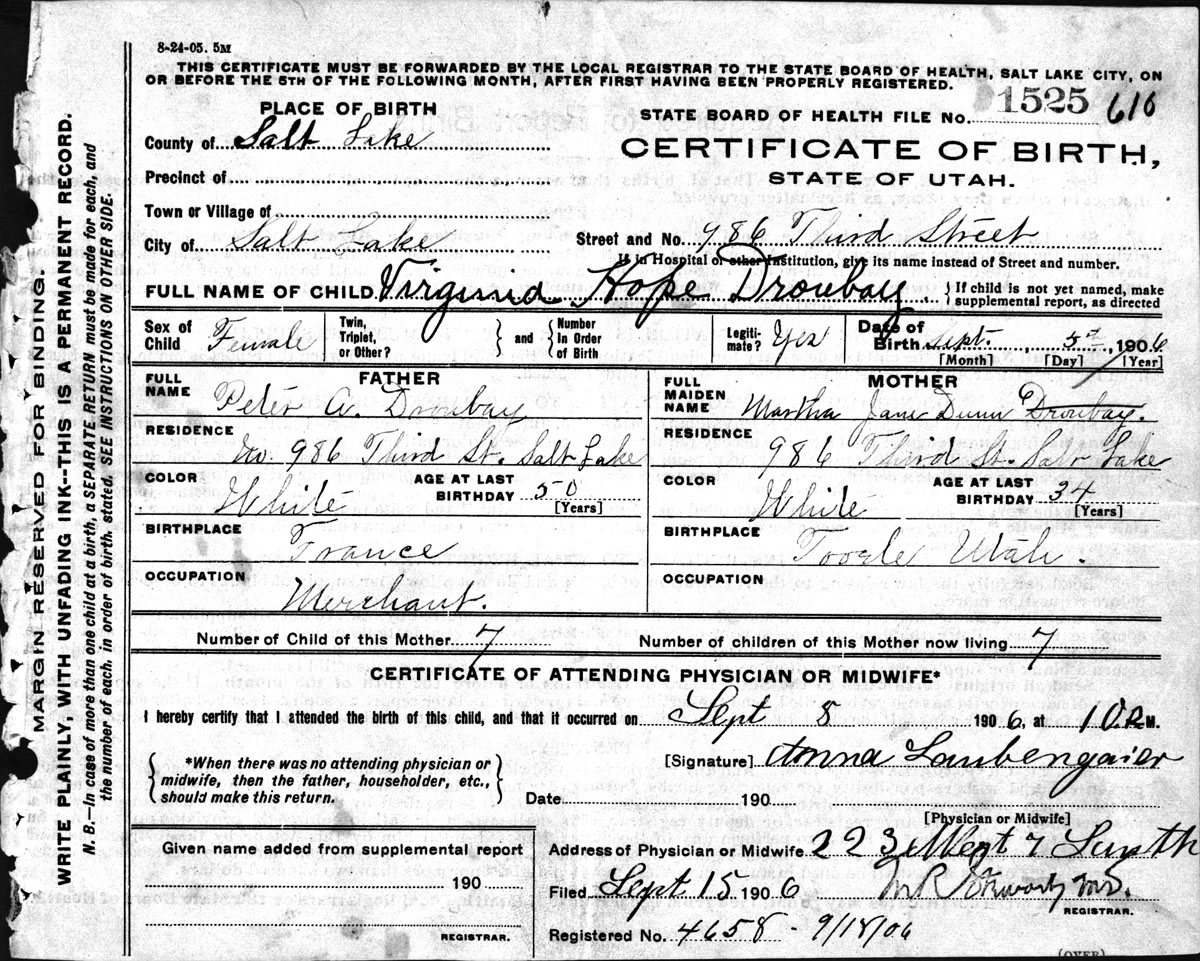 8-24-05. 5M
THIS CERTIFICATE MUST BE FORWARDED BY THE LOCAL REGISTRAR TO THE STATE BOARD OF HEALTH, SALT LAKE CITY, ON
OR BEFORE THE 5TH OF THE FOLLOWING MONTH, AFTER FIRST HAVING BEEN PROPERLY REGISTERED.
PLACE OF BIRTH
STATE BOARD OF HEALTH FILE No. 1525 616
County of Salt Lake
CERTIFICATE OF BIRTH,
STATE OF UTAH.
Precinct of
Town or Village of
City of Salt Lake
Street and No. 986 Third Street
If in Hospital or other Institution, give its name instead of Street and number.
FULL NAME OF CHILD Virginia Hope Droubay { If child is not yet named, make
supplemental report, as directed
Sex of Child Female
Twin, Triplet, or Other? } and { Number In Order of Birth
Legiti-mate? Yes
Date of Birth Sept. 5th, 1906
[Month] [Day] [Year]
FATHER
FULL NAME Peter A. Droubay
RESIDENCE No. 986 Third St. Salt Lake
COLOR White
AGE AT LAST BIRTHDAY 50
[Years]
BIRTHPLACE France
OCCUPATION Merchant.
MOTHER
FULL MAIDEN NAME Martha Jane Dunn Droubay.
RESIDENCE 986 Third St. Salt Lake
COLOR White
AGE AT LAST BIRTHDAY 34
[Years]
BIRTHPLACE Tooele Utah.
OCCUPATION
Number of Child of this Mother 7
Number of children of this Mother now living 7
CERTIFICATE OF ATTENDING PHYSICIAN OR MIDWIFE*
I hereby certify that I attended the birth of this child, and that it occurred on Sept 5 1906, at 10 P.M.
{ *When there was no attending physician or
midwife, then the father, householder, etc.,
should make this return. }
[Signature] Anna Laubengaier
Date 190
[Physician or Midwife]
Given name added from supplemental report
190
REGISTRAR.
Address of Physician or Midwife 223 West 7 South
Filed Sept. 15 1906
M.D.
REGISTRAR.
Registered No. 4658 - 9/18/06
(OVER)
MARGIN RESERVED FOR BINDING
WRITE PLAINLY, WITH UNFADING INK--THIS IS A PERMANENT RECORD.
N. B.—In case of more than one child at a birth, a SEPARATE RETURN must be made for each, and
the number of each, in order of birth, stated. SEE INSTRUCTIONS ON OTHER SIDE.